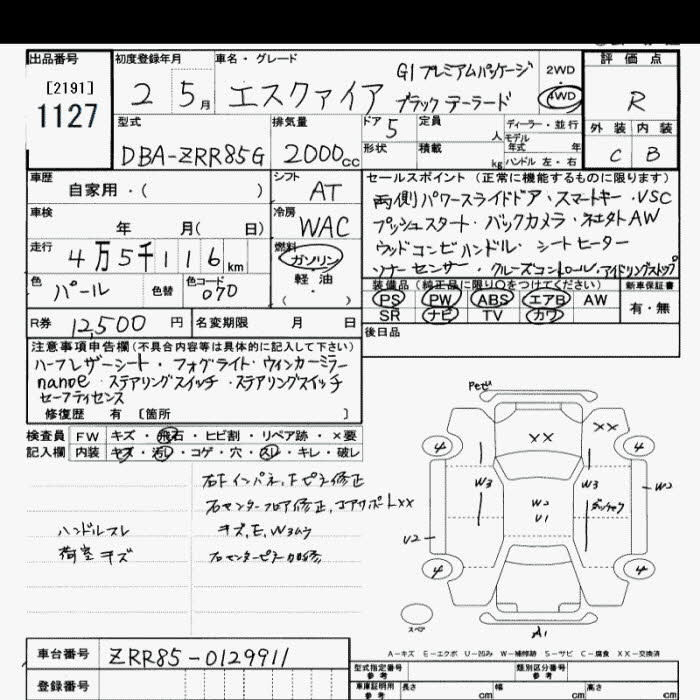 出品番号
[2191]
1127
初度登録年月
2 5月
車名・グレード
エスクァイア
GIプレミアムパッケージ
ブラックテーラード
2WD
4WD
評価点
R
外装 内装
C B
型式
DBA-ZRR85G
排気量
2000cc
ドア 5
定員 人
形状
積載 kg
ディーラー・並行
モデル
年式 年
ハンドル 左・右
車歴
自家用・( )
シフト
AT
車検
年 月( 日)
冷房
WAC
走行
4万5千116km
燃料
ガソリン
軽油
( ・ )
色
パール
色替
色コード
070
R券 12,500円
名変期限 月 日
セールスポイント(正常に機能するものに限ります)
両側パワースライドドア・スマートキー・VSC
プッシュスタート・バックカメラ・社外AW
ウッドコンビハンドル・シートヒーター
ソナーセンサー・クルーズコントロール・アイドリングストップ
装備品(純正品に限り○をつけてください)
新車保証書
PS PW ABS エアB AW
SR ナビ TV カワ
有・無
後日品
注意事項申告欄(不具合内容等は具体的に記入して下さい)
ハーフレザーシート・フォグライト・ウィンカーミラー
nanoe・ステアリングスイッチ・ステアリングスイッチ
セーフティセンス
修復歴 有 [箇所 ]
検査員
記入欄
FW キズ・飛石・ヒビ割・リペア跡・×要
内装 キズ・汚レ・コゲ・穴・スレ・キレ・破レ
右Fインパネ、Fピラ修正
右センターフロア修正、コアサポートXX
ハンドルスレ
キズ、E、W3ムラ
荷室キズ
右センターピラ
XX
XX
4
4
W3
W3
W2
W2
U1
U2
4
4
スペア
A1
A-キズ E-エクボ U-凹み W-補修跡 S-サビ C-腐食 XX-交換済
車台番号
ZRR85-0129911
登録番号
型式指定番号
参考
類別区分番号
参考
車庫証明用
参考
長さ cm
幅 cm
高さ cm